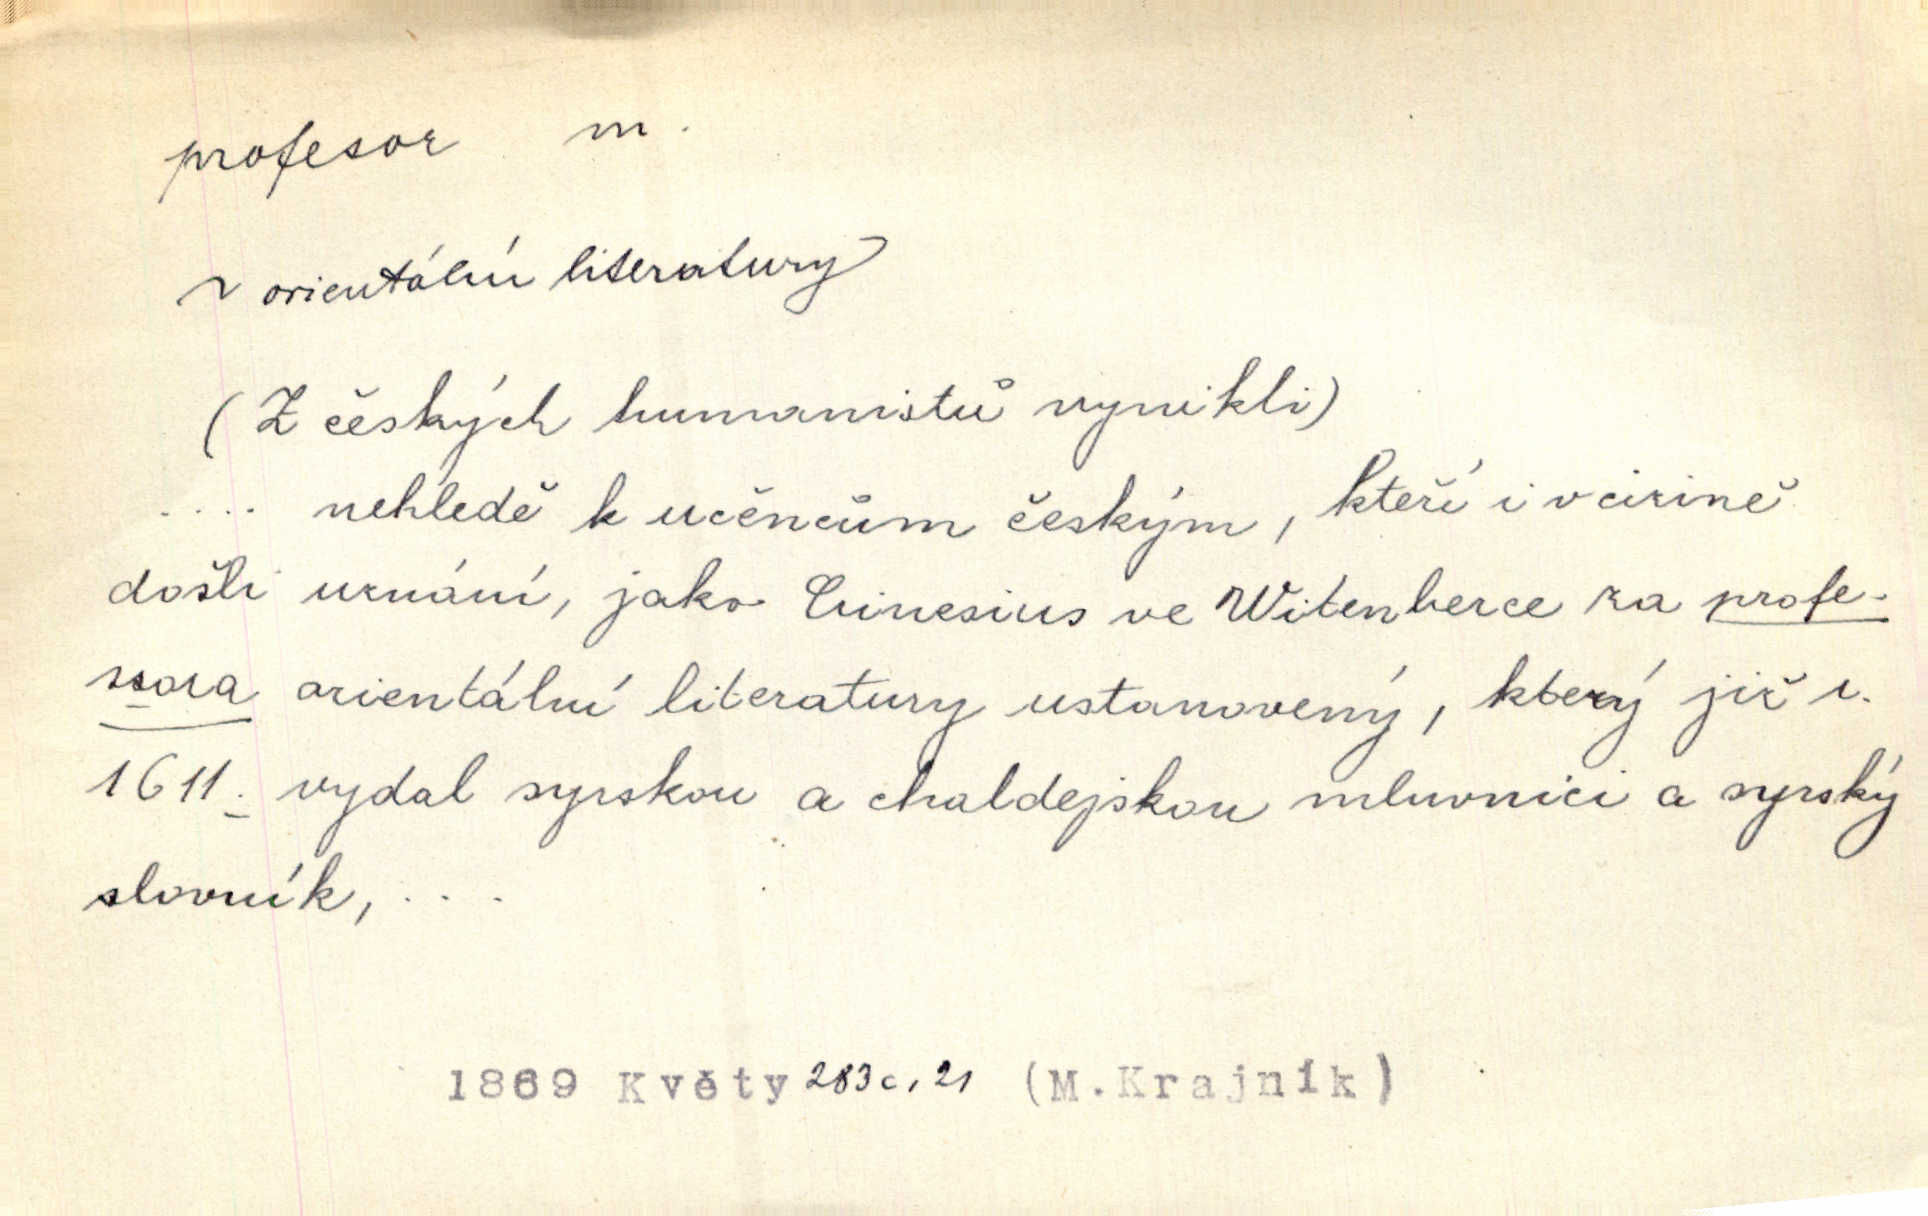 profesor m.
~ orientální literatury
(Z českých humanistů vynikli)
.... nehledě k učencům českým, kteří i v cizině
došli uznání, jako Crinesius ve Witenberce za profe-
ssora orientální literatury ustanovený, který již r.
1611. vydal syrskou a chaldejskou mluvnici a syrský
slovník, ....
1869 Květy 283c, 21 (M.Krajník)